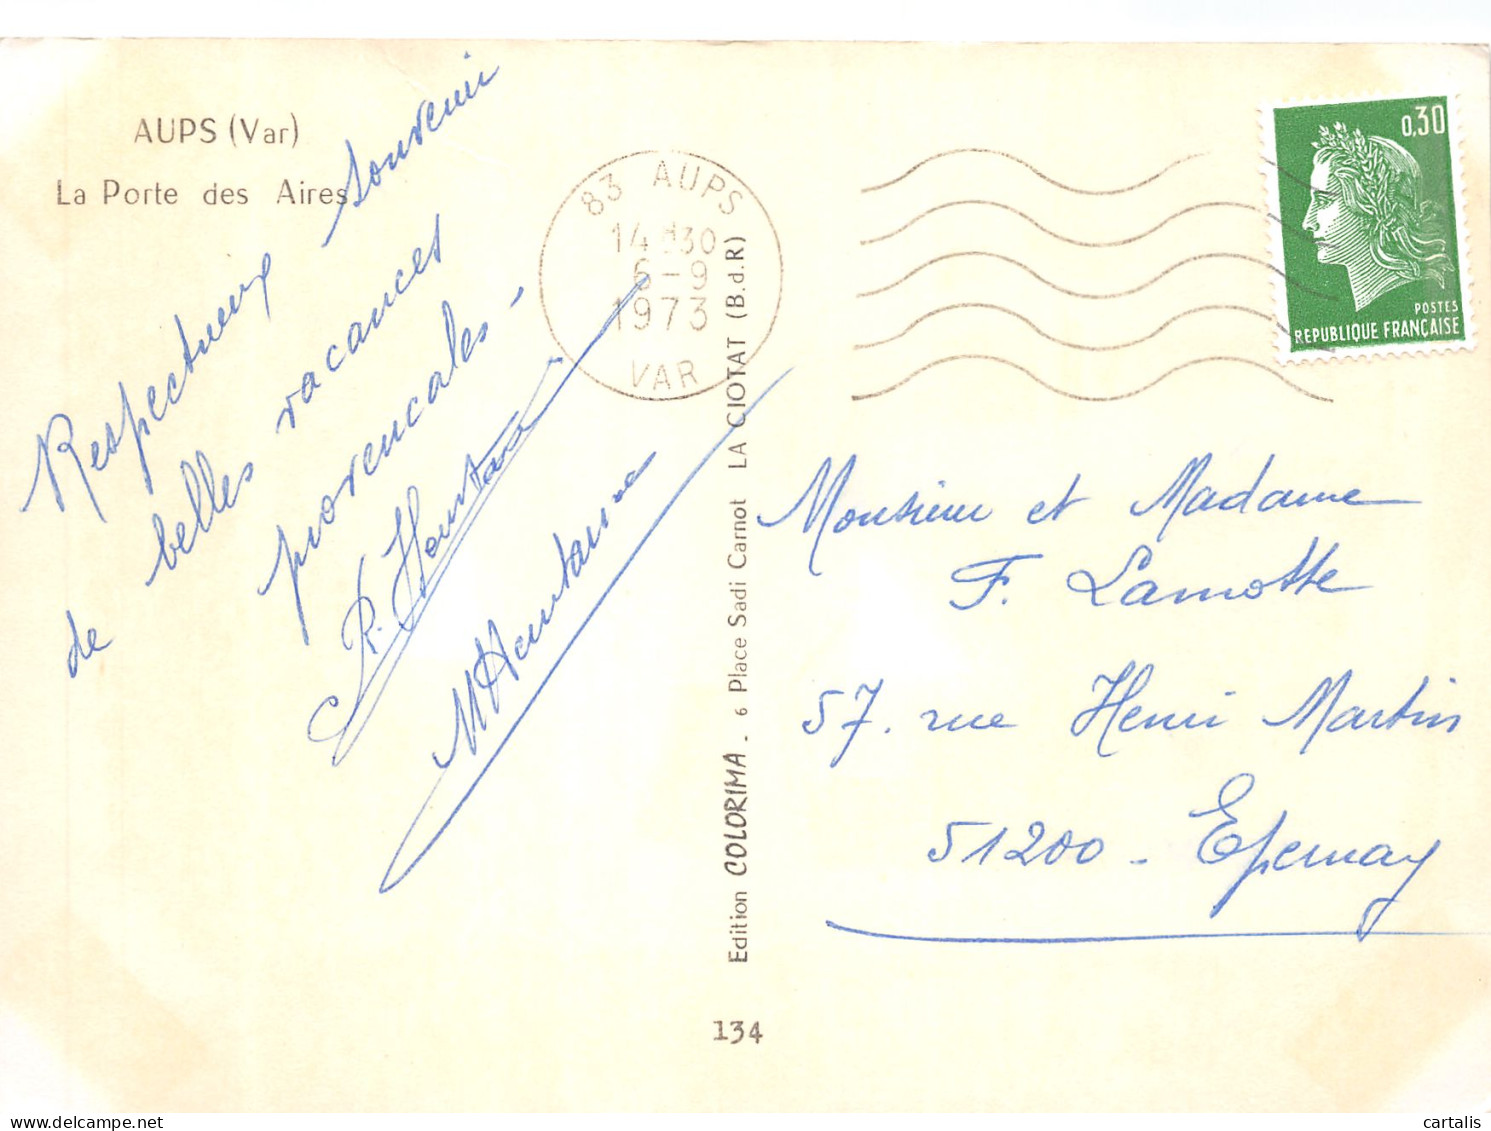 AUPS (Var)
La Porte des Aires
Respectueux souvenir
de belles vacances
provencales -
83 AUPS
14 H30
6-9
1973
VAR
0,30
POSTES
REPUBLIQUE FRANÇAISE
Monsieur et Madame
F. Lamotte
57. rue Henri Martin
51200 - Epernay
Edition COLORIMA - 6 Place Sadi Carnot LA CIOTAT (B.d.R)
134
delcampe.net
cartalis